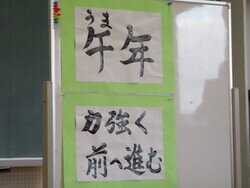 うま
午年
力強く
前へ進む